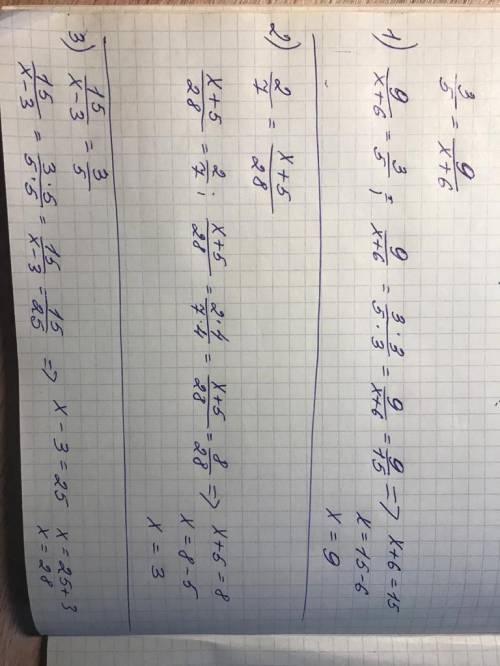 3/5 = 9/x+6
1) 9/x+6 = 3/5; 9/x+6 = 3·3/5·3 = 9/x+6 = 9/15 => x+6=15
x=15-6
x=9
2) 2/7 = x+5/28
x+5/28 = 2/7; x+5/28 = 2·4/7·4 = x+5/28 = 8/28 => x+5=8
x=8-5
x=3
3) 15/x-3 = 3/5
15/x-3 = 3·5/5·5 = 15/x-3 = 15/25 => x-3=25 x=25+3
x=28